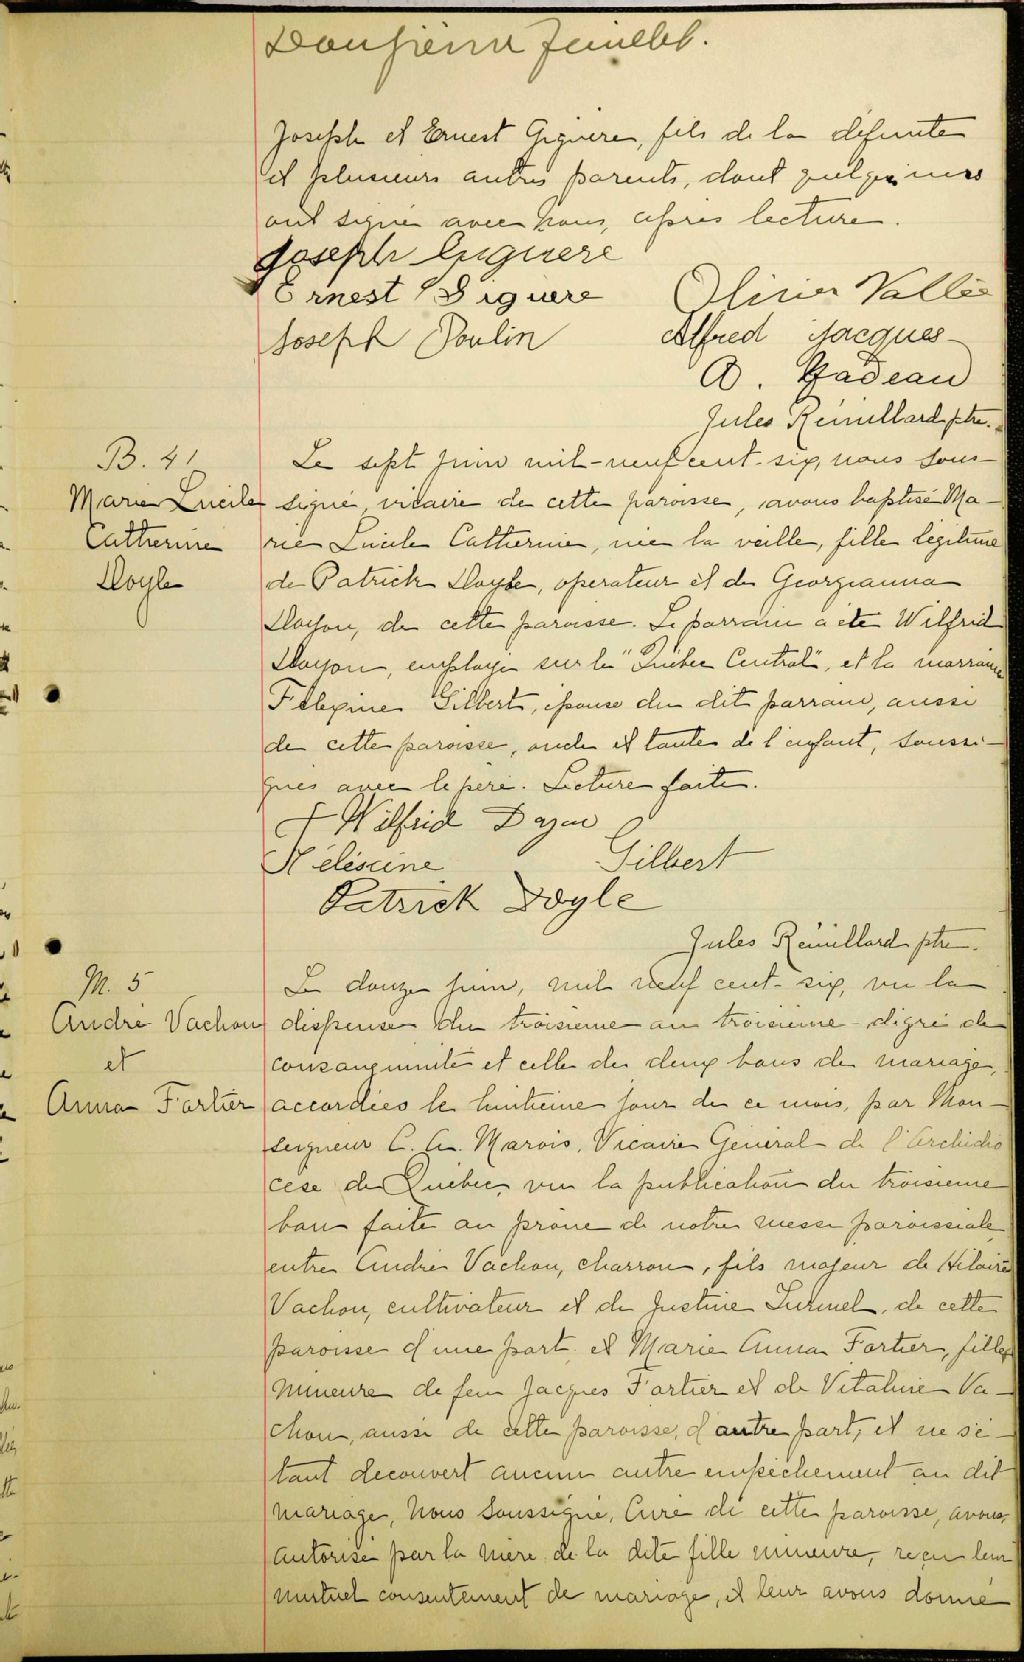 Douzième feuillet.
Joseph et Ernest Giguère, fils de la défunte
et plusieurs autres parents, dont quelques uns
ont signé avec nous, après lecture.
Joseph Giguere
Ernest Giguere Olivier Vallée
Joseph Poulin Alfred Jacques
A. Nadeau
Jules Rémillard ptre.
B. 41
Marie Lucile
Catherine
Doyle
Le sept juin mil-neuf cent-six, nous sous-
signé, vicaire de cette paroisse, avons baptisé Ma-
rie Lucile Catherine, née la veille, fille légitime
de Patrick Doyle, operateur et de Georgianna
Doyon, de cette paroisse. Le parrain a été Wilfrid
Doyon, employé sur le "Québec Central", et la marraine
Gilbert, épouse du dit parrain, aussi
de cette paroisse, oncle et tante de l'enfant, soussi-
gnés avec le père. Lecture faite.
Wilfrid Doyon
Gilbert
Patrick Doyle
Jules Rémillard ptre.
M. 5
André Vachon
et
Anna Fortier
Le douze juin, mil neuf cent-six, vu la
dispense du troisieme au troisieme degré de
consanguinité et celle de deux bans de mariage,
accordées le huitieme jour de ce mois, par Mon-
seigneur C. A. Marois, Vicaire Général de l'Archidio
cèse de Québec, vu la publication du troisieme
ban faite au prône de notre messe paroissiale
entre André Vachon, charron, fils majeur de Hilaire
Vachon, cultivateur et de Justine Turmel, de cette
paroisse d'une part, et Marie Anna Fortier, fille
mineure de feu Jacques Fortier et de Vitaline Va-
chon, aussi de cette paroisse, d'autre part, et ne s'é-
tant decouvert aucun autre empêchement au dit
mariage, Nous Soussigné, Curé de cette paroisse, avons,
autorisé par la mère de la dite fille mineure, reçu leur
mutuel consentement de mariage, et leur avons donné